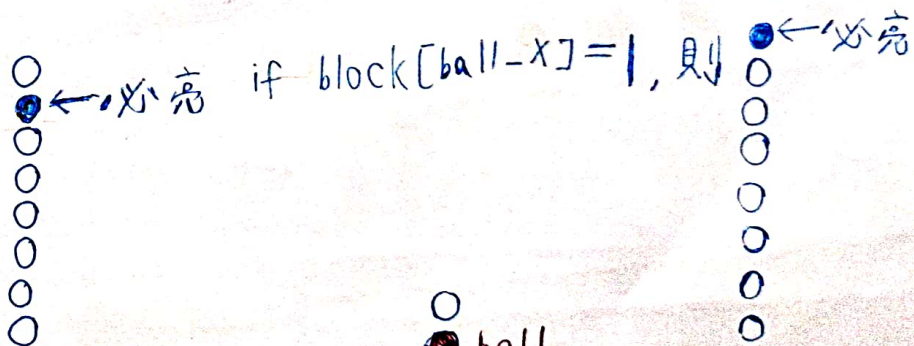 ←必亮 if block[ball-x]=1, 則 ←必亮
ball